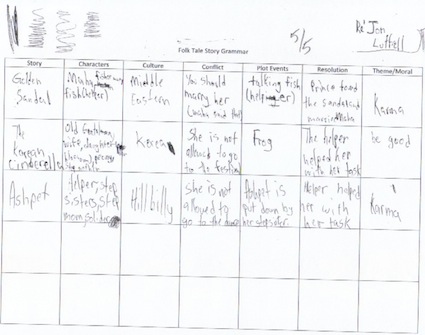 5/5
Re'Jon
Luttrell
Folk Tale Story Grammar
Story Characters Culture Conflict Plot Events Resolution Theme/Moral
Golden
Sandal
Maha
fish(helper)
Middle
Eastern
You should
marry her
talking fish
(helper)
Prince found
the sandal and
married Maha
Karma
The
Korean
Cinderella
Korea
She is not
allowed to go
to do festival
Frog
The helper
helped her
with her task
be good
Ashpet
Helper, step
sisters, step
mom, solider
Hillbilly
she is not
allowed to
go to the dance
Ashpet is
put down by
her stepsister.
Helper helped
her with
her task
Karma